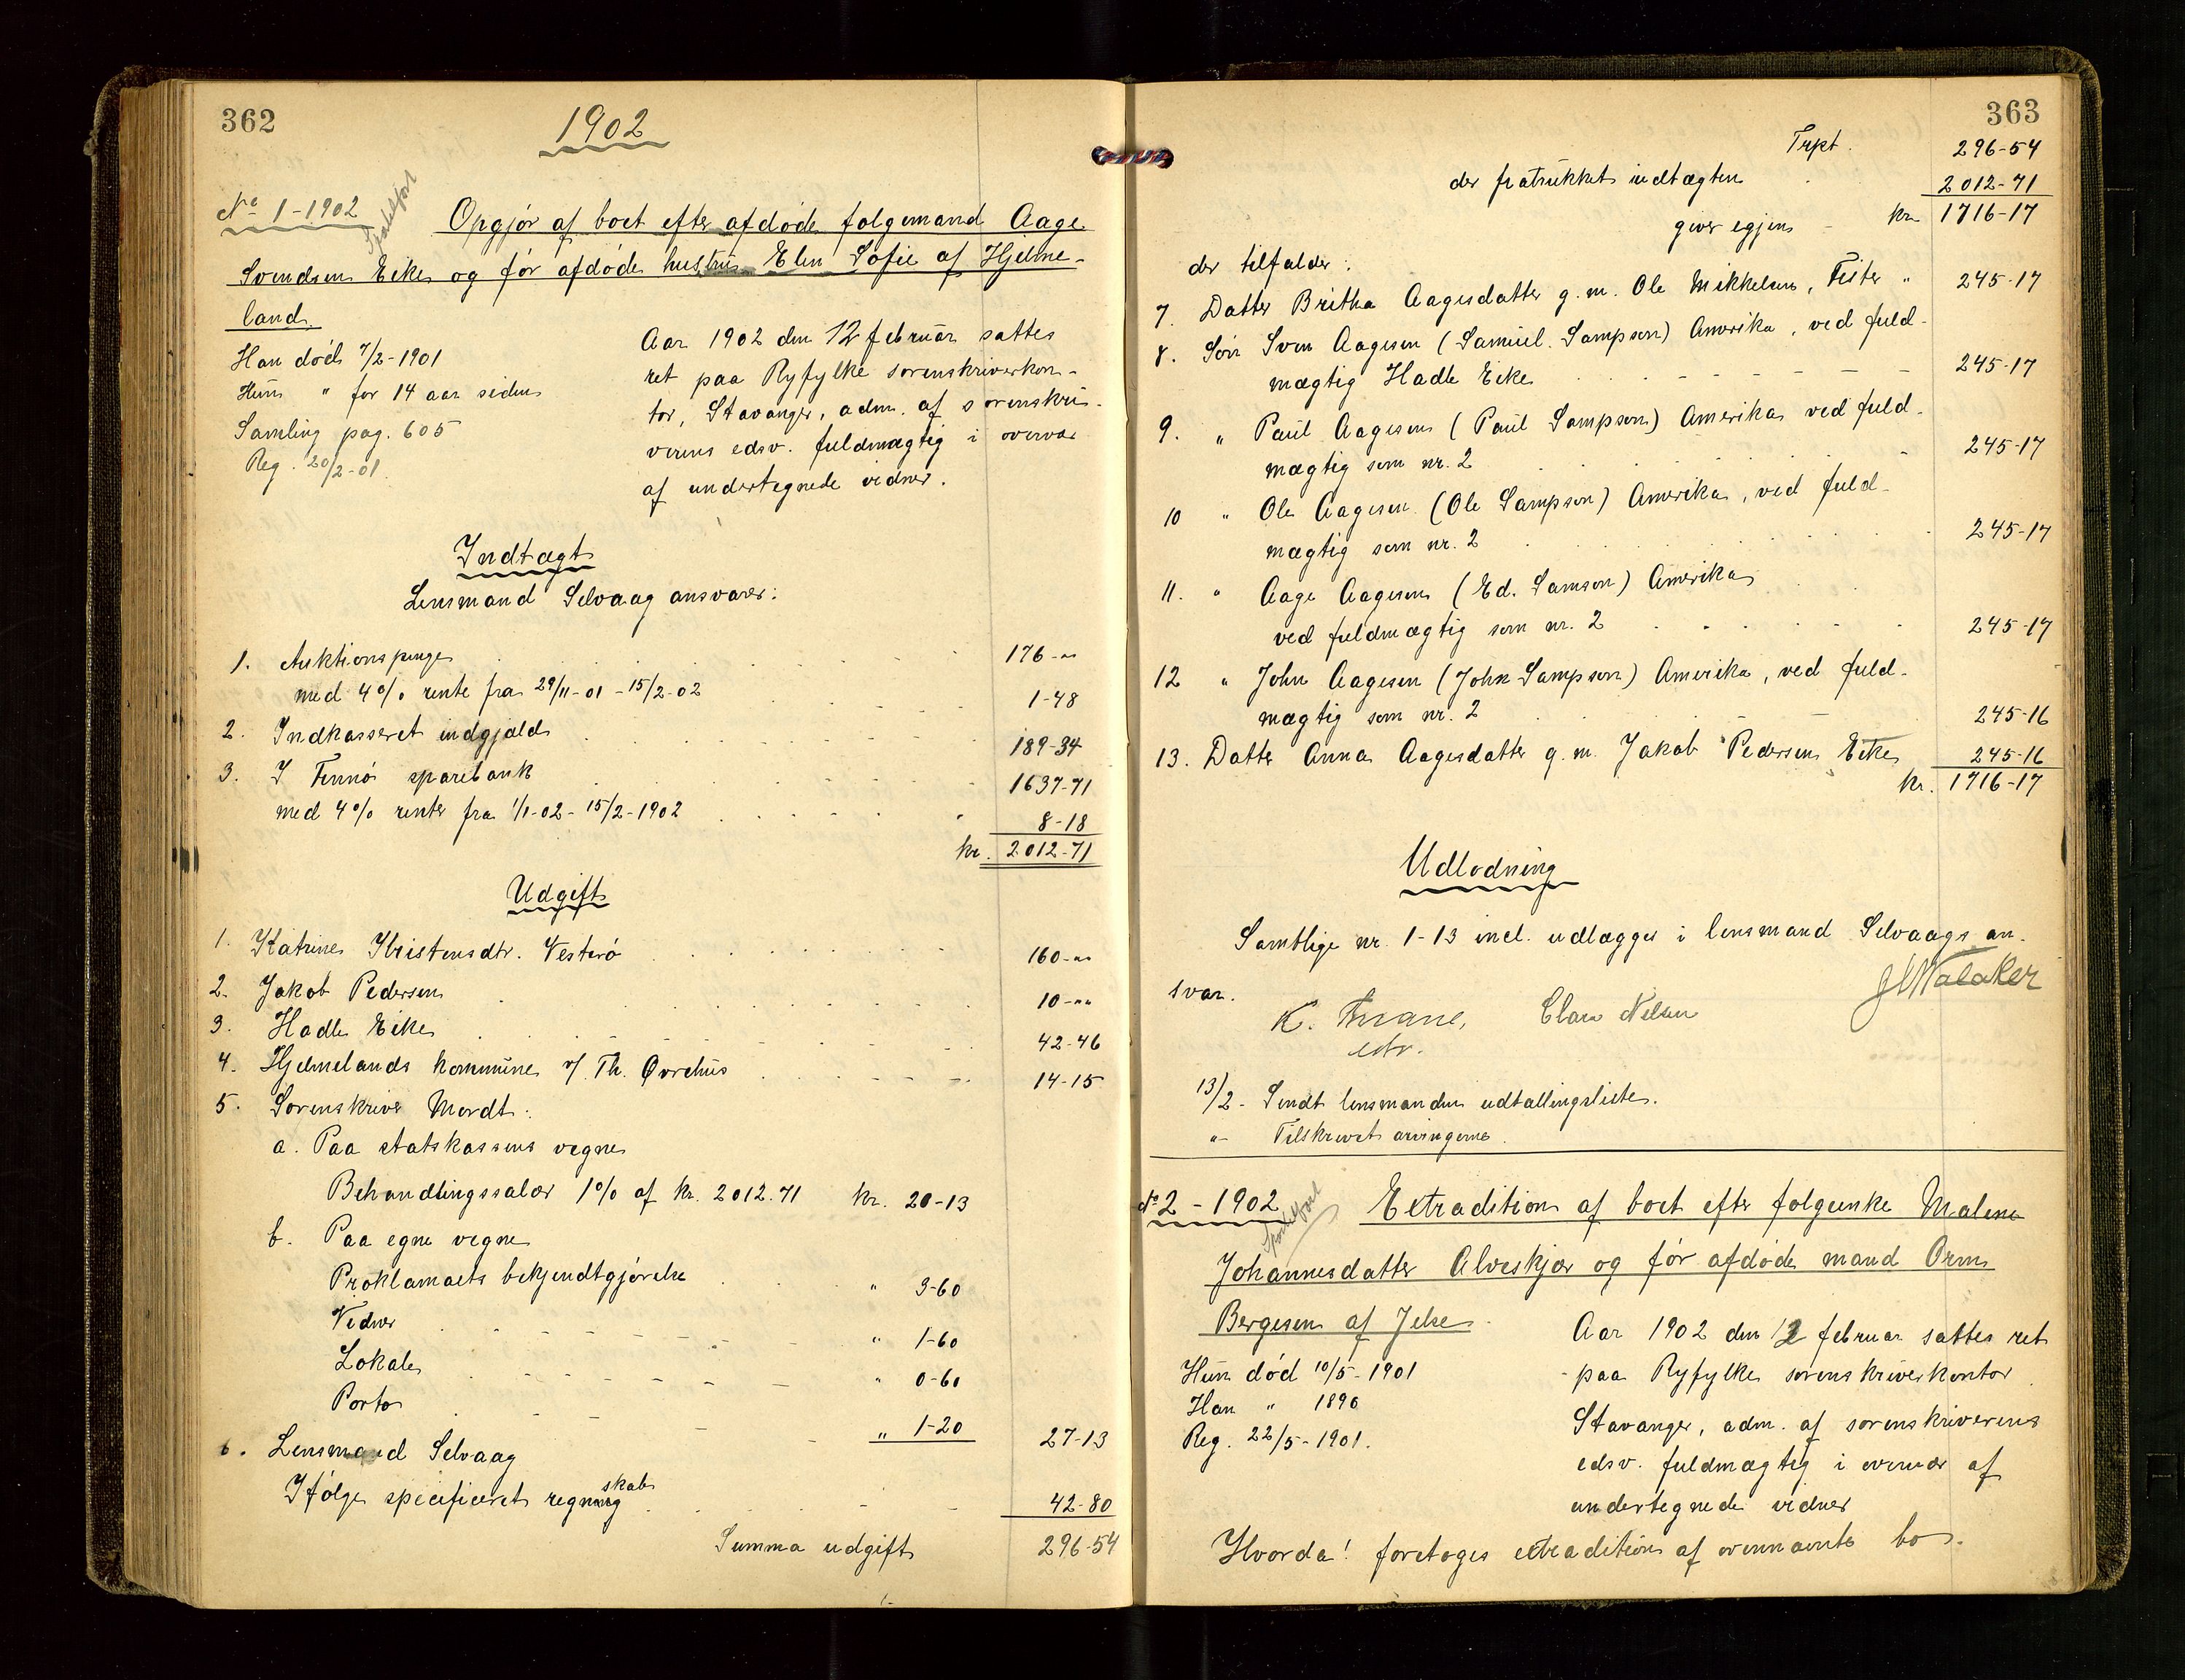 362
1902
No 1-1902
Opgjør af boet efter afdøde folgemand Aage
Svendsen Eike og før afdøde hustru Elen Sofie af Hjelme-
land.
Han død 7/2-1901
Hun " for 14 aar siden
Samling pag. 605
Reg. 20/2-01.
Aar 1902 den 12 februar sattes
ret paa Ryfylke sorenskriverkon-
tor, Stavanger, adm. af sorenskri-
verens edsv. fuldmægtig i overvær
af undertegnede vidner.
Indtægt
Lensmand Selvaag ansvarer:
1. Auktionspenge 176-"
med 4% rente fra 29/11-01 - 15/2-02 1-48
2. Indkasseret indgjæld 189-34
3. I Finnö sparebank 1637-71
med 4% renter fra 1/1-02 - 15/2-1902 8-18
kr. 2012-71
Udgift
1. Katrine Kristensdtr. Vesterö 160-"
2. Jakob Pedersen 10-""
3. Hadle Eike 42-46
4. Hjelmelands kommune v/ Th. Øvrehus 14-15
5. Sorenskriver Mordt:
a. Paa statskassens vegne
Behandlingssalær 1% af kr. 2012.71 kr. 20-13
b. Paa egne vegne
Proklamaets bekjendtgjørelse " 3-60
Vidner " 1-60
Lokale " 0-60
Porto " 1-20 27-13
6. Lensmand Selvaag
Ifølge specificeret regnskab 42-80
Summa udgift 296-54
363
Trpt. 296-54
der fratrukket indtægten 2012-71
giver egjen kr. 1716-17
der tilfalder:
7. Datter Britha Aagesdatter g.m. Ole Mikkelsen, Fister " 245-17
8. Søn Sven Aagesen (Samuel Sampson) Amerika, ved fuld-
mægtig Hadle Eike 245-17
9. " Paul Aagesen (Paul Sampson) Amerika ved fuld-
mægtig som nr. 2 245-17
10 " Ole Aagesen (Ole Sampson) Amerika, ved fuld-
mægtig som nr. 2 245-17
11. " Aage Aagesen (Ed. Samson) Amerika
ved fuldmægtig som nr. 2 245-17
12 " John Aagesen (John Sampson) Amerika, ved fuld-
mægtig som nr. 2 245-16
13. Datter Anna Aagesdatter g.m. Jakob Pedersen Eike 245-16
kr. 1716-17
Udlodning
Samtlige nr. 1-13 incl. udlægges i lensmand Selvaags an-
svar.
K. Thrane, Clara Nelsen
edsv.
13/2- Sendt lensmanden udtallingsliste.
"- Tilskrevet arvingerne.
No 2-1902
Extradition af boet efter folgeenke Malene
Johannesdatter Alveskjær og før afdøde mand Orm
Bergesen af Jelse.
Hun død 10/5-1901
Han " 1896
Reg. 22/5-1901.
Aar 1902 den 12 februar sattes ret
paa Ryfylke sorenskriverkontor
Stavanger, adm. af sorenskriverens
edsv. fuldmægtig i overvær af
undertegnede vidner
Hvorda! foretoges extradition af ovennævnte bo.